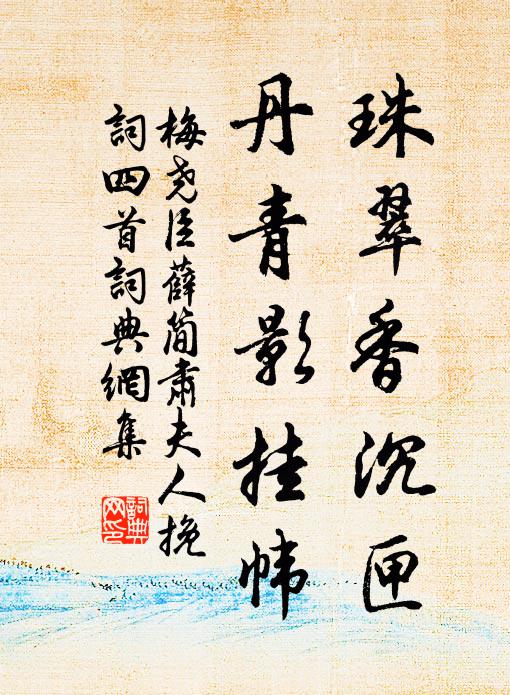 珠翠香沉匣
丹青影挂帏
梅尧臣薛简肃夫人挽
詞四首詞典網集
詞典
网印